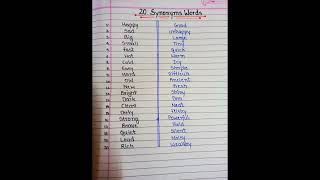 20 Synonyms Words
1. Happy Glad
2. Sad Unhappy
3. Big Large
4. Small Tiny
5. Fast Quick
6. Hot Warm
7. Cold Icy
8. Easy Simple
9. Hard Difficult
10. Old Ancient
11. New Fresh
12. Bright Shiny
13. Dark Dim
14. Clean Neat
15. Dirty Filthy
16. Strong Powerful
17. Brave Bold
18. Quiet Silent
19. Loud Noisy
20. Rich Wealthy